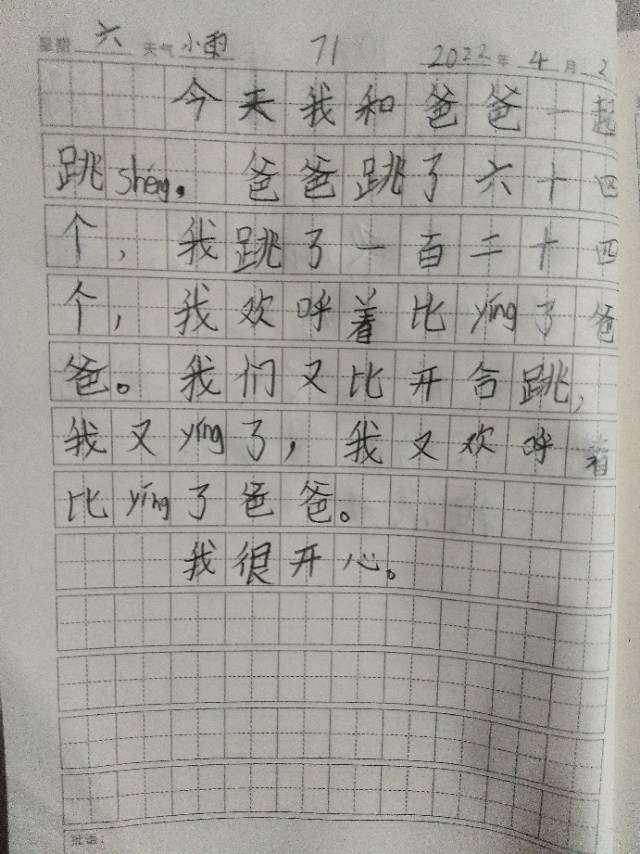 星期 六 天气 小雨 71 2022 年 4 月 2
今天我和爸爸一起
跳shéng。爸爸跳了六十四
个，我跳了一百二十四
个，我欢呼着比yíng了爸
爸。我们又比开合跳，
我又yíng了，我又欢呼着
比yíng了爸爸。
我很开心。
批语：